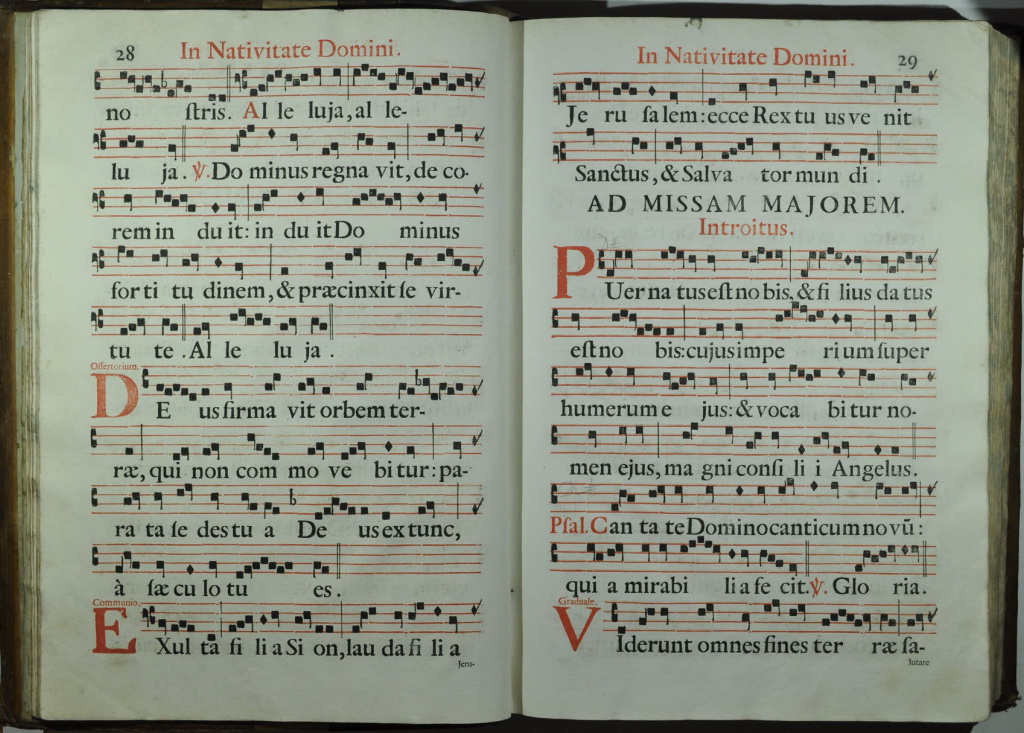 28 In Nativitate Domini.
no ſtris. Al le luja, al le-
lu ja. ℣. Do minus regna vit, de co-
rem in du it: in du it Do minus
for ti tu dinem, & præcinxit ſe vir-
tu te. Al le lu ja.
Offertorium.
DE us firma vit orbem ter-
ræ, qui non com mo ve bi tur: pa-
ra ta ſe des tu a De us ex tunc,
à ſæ cu lo tu es.
Communio.
EXul ta fi li a Si on, lau da fi li a
Jeru-
In Nativitate Domini. 29
Je ru ſa lem: ecce Rex tu us ve nit
Sanctus, & Salva tor mun di.
AD MISSAM MAJOREM.
Introitus.
PUer na tus eſt no bis, & fi lius da tus
eſt no bis: cujus impe ri um ſuper
humerum e jus: & voca bi tur no-
men ejus, ma gni conſi li i Angelus.
Pſal. Can ta te Domino canticum novū:
qui a mirabi li a fe cit. ℣. Glo ria.
Graduale.
VIderunt omnes fines ter ræ ſa-
lutare